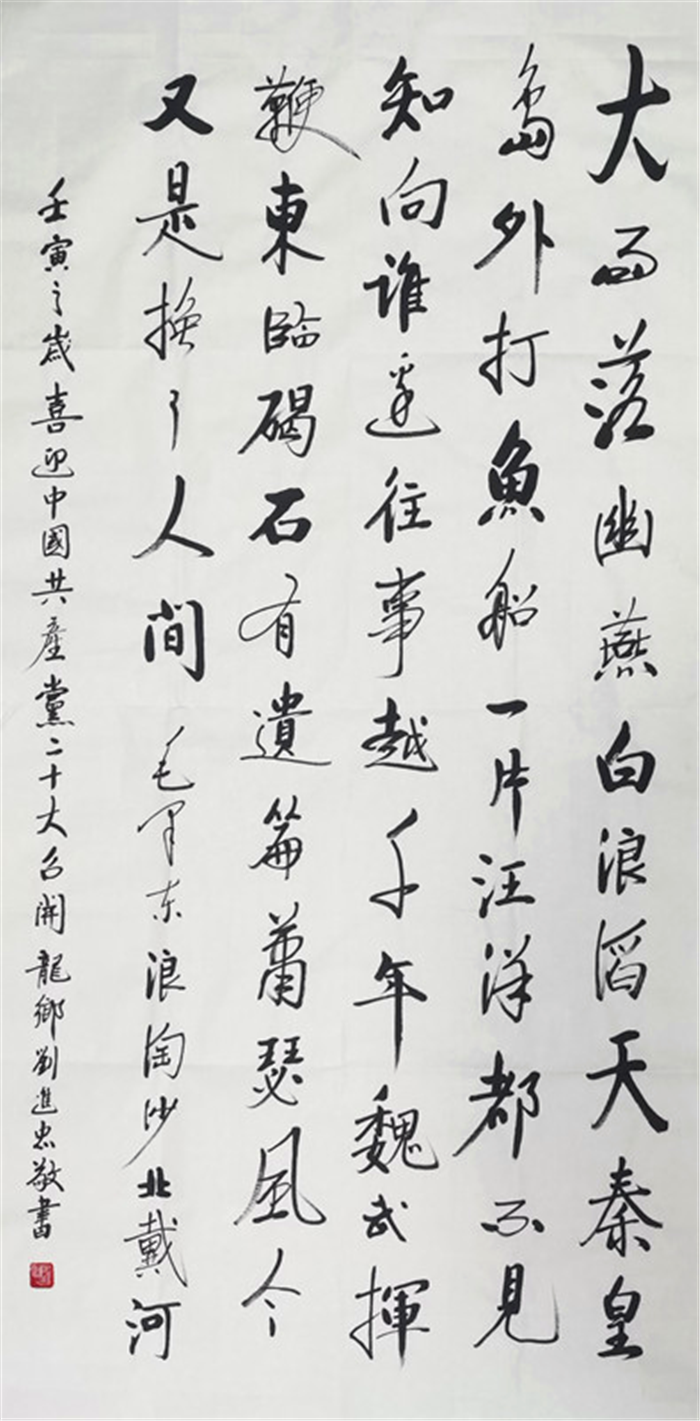 大雨落幽燕白浪滔天秦皇
島外打魚船一片汪洋都不見
知向誰邊往事越千年魏武揮
鞭東臨碣石有遺篇蕭瑟風今
又是換了人間毛澤东浪淘沙北戴河
壬寅之歲喜迎中國共產黨二十大召開龍鄉劉進忠敬書